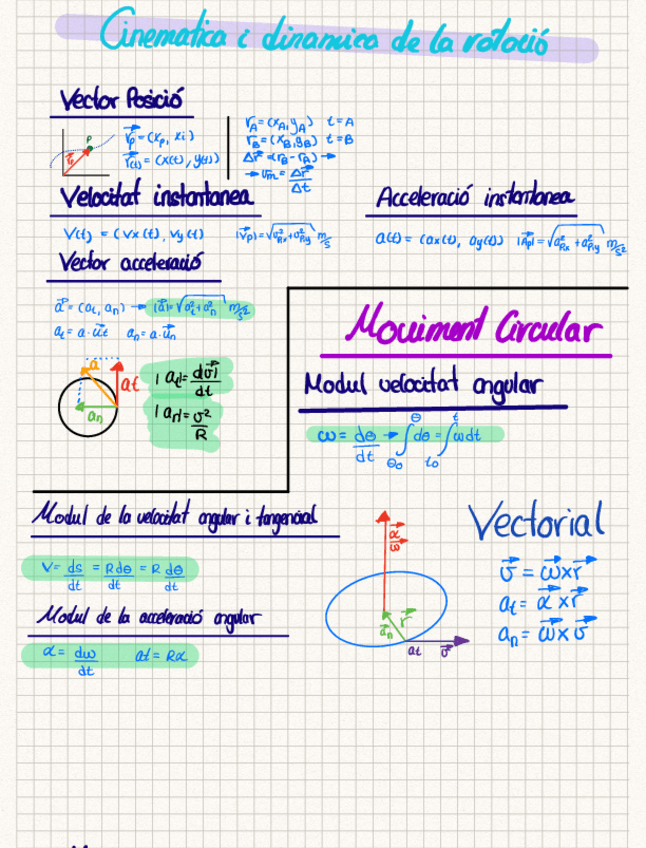 Cinematica i dinamica de la rotació
Vector Posició
P
r⃗p
r⃗p = (xp, xi)
r⃗(t) = (x(t), y(t))
rA = (xA, yA) t = A
rB = (xB, yB) t = B
Δr⃗ = (rB - rA) →
→ vm = Δr⃗/Δt
Velocitat instantanea
V(t) = (Vx(t), Vy(t)) |v⃗p| = √(v²Px + v²Py) m/s
Acceleració instantanea
a(t) = (ax(t), ay(t)) |Ap| = √(a²Px + a²Py) m/s²
Vector acceleració
a⃗ = (at, an) → |a⃗| = √(a²t + a²n) m/s²
at = a · u⃗t an = a · u⃗n
a
at
an
|at| = d|v⃗|/dt
|an| = v²/R
Moviment Circular
Modul velocitat angular
ω = dθ/dt → ∫θ₀^θ dθ = ∫t₀^t ωdt
Modul de la velocitat angular i tangencial
V = ds/dt = Rdθ/dt = R dθ/dt
Modul de la acceleració angular
α = dω/dt at = Rα
α⃗
ω⃗
r⃗
a⃗n
at
v⃗
Vectorial
v⃗ = ω⃗ x r⃗
a⃗t = α⃗ x r⃗
a⃗n = ω⃗ x v⃗